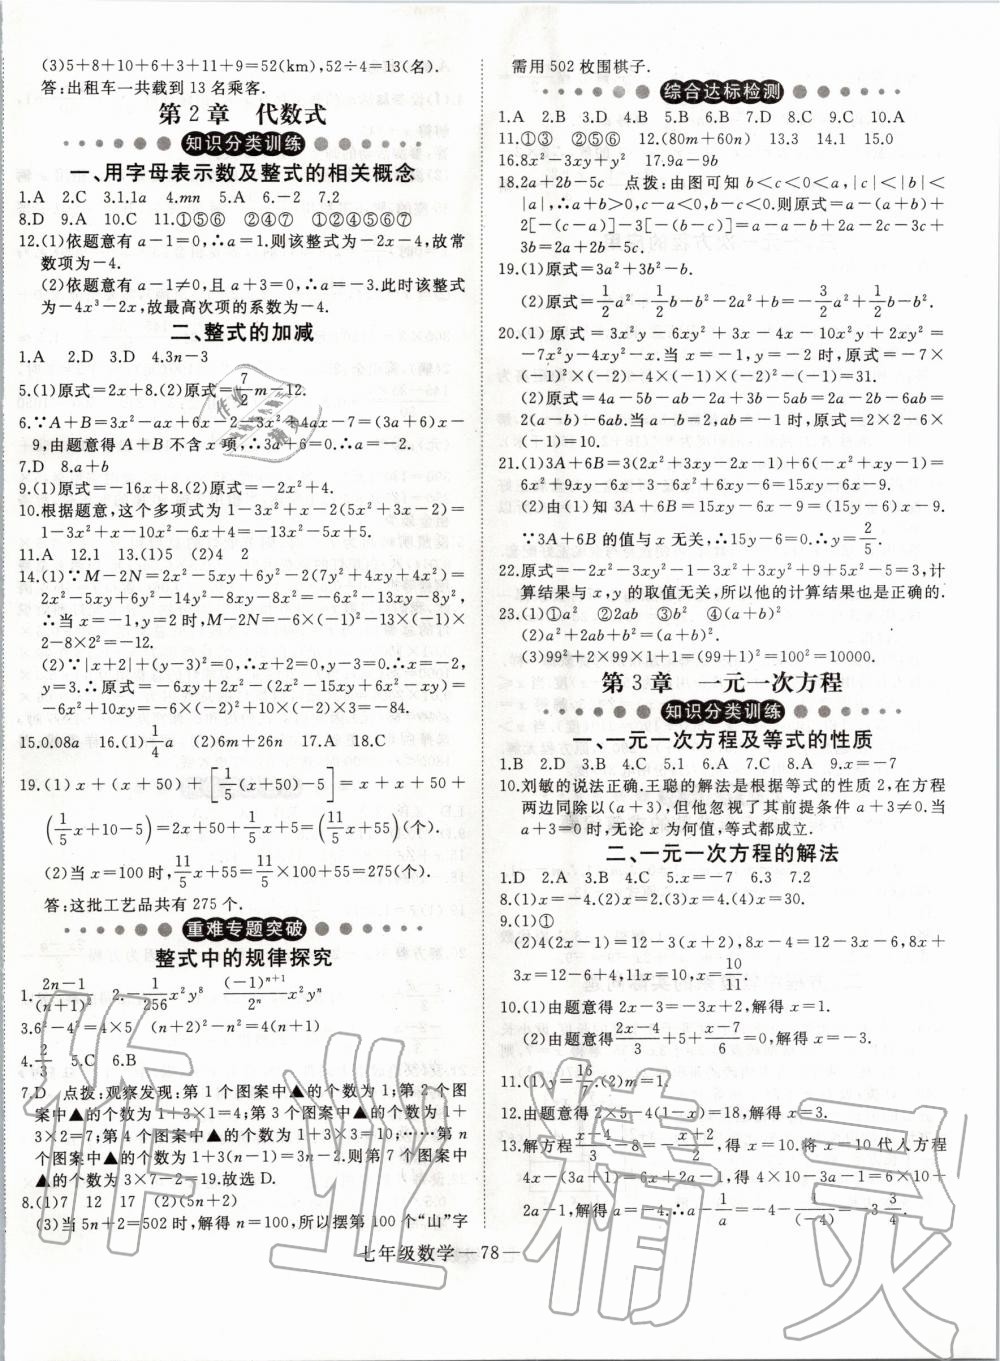 (3)5+8+10+6+3+11+9=52(km),52÷4=13(名).
答:出租车一共载到 13 名乘客.
第 2 章 代数式
知识分类训练
一、用字母表示数及整式的相关概念
1.A 2.C 3.1.1a 4.mn 5.A 6.-2 7.2
8.D 9.A 10.C 11.①⑤⑥ ②④⑦ ①②④⑤⑥⑦
12.(1)依题意有 a-1=0,∴a=1,则该整式为-2x-4,故常
数项为-4.
(2)依题意有 a-1≠0,且 a+3=0,∴a=-3.此时该整式
为-4x³-2x,故最高次项的系数为-4.
二、整式的加减
1.A 2.D 3.D 4.3n-3
5.(1)原式=2x+8.(2)原式=7/2 m-12.
6.∵A+B=3x²-ax+6x-2-3x²+4ax-7=(3a+6)x-
9,由题意得 A+B 不含 x 项,∴3a+6=0.∴a=-2.
7.D 8.a+b
9.(1)原式=-16x+8.(2)原式=-2x²+4.
10.根据题意,这个多项式为 1-3x²+x-2(5x²+3x-2)=
1-3x²+x-10x²-6x+4=-13x²-5x+5.
11.A 12.1 13.(1)5 (2)4 2
14.(1)∵M-2N=2x²-5xy+6y²-2(7y²+4xy+4x²)=
2x²-5xy+6y²-14y²-8xy-8x²=-6x²-13xy-8y²,
∴当 x=-1,y=2 时,M-2N=-6×(-1)²-13×(-1)×
2-8×2²=-12.
(2)∵|x+2|+(y-3)²=0,∴x+2=0,y-3=0.∴x=-2,
y=3.∴原式=-6xy+2x²-(2x²-15xy+6x²-xy)=
-6x²+10xy=-6×(-2)²+10×(-2)×3=-84.
15.0.08a 16.(1)1/4 a (2)6m+26n 17.A 18.C
19.(1)x+(x+50)+[1/5(x+50)-5]=x+x+50+
(1/5 x+10-5)=2x+50+1/5 x+5=(11/5 x+55)(个).
(2)当 x=100 时,11/5 x+55=11/5×100+55=275(个).
答:这批工艺品共有 275 个.
重难专题突破
整式中的规律探究
1.(2n-1)/(n+1)² 2.-1/256 x²y⁸ (-1)ⁿ⁺¹/2ⁿ x²yⁿ
3.6²-4²=4×5 (n+2)²-n²=4(n+1)
4.2/3 5.C 6.B
7.D 点拨:观察发现:第 1 个图案中▲的个数为 1;第 2 个图
案中▲的个数为 1+3×1=4;第 3 个图案中▲的个数为 1+
3×2=7;第 4 个图案中▲的个数为 1+3×3=10;……第 n
个图案中▲的个数为 1+3(n-1)=3n-2.则第 7 个图案中
▲的个数为 3×7-2=19.故选 D.
8.(1)7 12 17 (2)(5n+2)
(3)当 5n+2=502 时,解得 n=100,所以摆第 100 个“山”字
需用 502 枚围棋子.
综合达标检测
1.A 2.B 3.D 4.B 5.C 6.B 7.D 8.C 9.C 10.A
11.①③ ②⑤⑥ 12.(80m+60n) 13.3 14.1 15.0
16.8x²-3xy+y² 17.9a-9b
18.2a+2b-5c 点拨:由图可知 b<c<0<a,|c|<|b|<
|a|,∴a+b>0,c-a<0,b-c<0.则原式=a-(a+b)+
2[-(c-a)]-3[-(b-c)]=a-a-b+2a-2c-3c+
3b=2a+2b-5c.
19.(1)原式=3a²+3b²-b.
(2)原式=1/2 a²-1/2 b-b²-2a²+b=-3/2 a²+1/2 b-b².
20.(1)原式=3x²y-6xy²+3x-4x-10x²y+2xy²=
-7x²y-4xy²-x.当 x=-1,y=-2 时,原式=-7×
(-1)²×(-2)-4×(-1)×(-2)²-(-1)=31.
(2)原式=4a-5b-ab-2a+3b-5ab=2a-2b-6ab=
2(a-b)-6ab.当 a-b=2,ab=-1 时,原式=2×2-6×
(-1)=10.
21.(1)3A+6B=3(2x²+3xy-2x-1)+6(-x²+xy-1)=
6x²+9xy-6x-3-6x²+6xy-6=15xy-6x-9.
(2)由(1)知 3A+6B=15xy-6x-9=(15y-6)x-9.
∵3A+6B 的值与 x 无关,∴15y-6=0.∴y=2/5.
22.原式=-2x²-3xy²-1-3x²+3xy²+9+5x²-5=3,计
算结果与 x,y 的取值无关,所以他的计算结果也是正确的.
23.(1)①a² ②2ab ③b² ④(a+b)²
(2)a²+2ab+b²=(a+b)².
(3)99²+2×99×1+1=(99+1)²=100²=10000.
第 3 章 一元一次方程
知识分类训练
一、一元一次方程及等式的性质
1.B 2.D 3.B 4.C 5.1 6.A 7.C 8.A 9.x=-7
10.刘敏的说法正确.王聪的解法是根据等式的性质 2,在方程
两边同除以(a+3),但他忽视了其前提条件 a+3≠0.当
a+3=0 时,无论 x 为何值,等式都成立.
二、一元一次方程的解法
1.D 2.A 3.B 4.C 5.x=-7 6.3 7.2
8.(1)x=-4.(2)x=2.(3)x=4.(4)x=30.
9.(1)①
(2)4(2x-1)=12-3(x+2),8x-4=12-3x-6,8x+
3x=12-6+4,11x=10,x=10/11.
10.(1)由题意得 2x-3=-3x+2,解得 x=1.
(2)由题意得(2x-4)/3+5+(x-7)/6=0,解得 x=-3.
11.(1)y=16/7.(2)m=1.
12.由题意得 2×5-4(1-x)=18,解得 x=3.
13.解方程(x-4)/3-8=-(x+2)/2,得 x=10.将 x=10 代入方程
4x-(3a+1)=6x+2a-1,得 4×10-(3a+1)=6×10+
2a-1,解得 a=-4.∴a-1/a=-4-1/(-4)=-3 3/4.
七年级数学 — 78 —
作业精灵